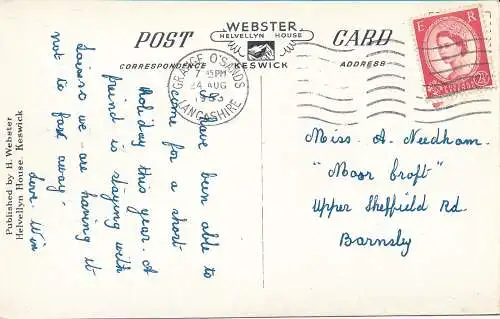 WEBSTER
HELVELLYN HOUSE
KESWICK
POST CARD
CORRESPONDENCE
ADDRESS
E R
GRANGE O'SANDS
PM
24 AUG
LANCASHIRE
have been able to
come for a short
holiday this year. A
freind is staying with
so we are having it
not to far away.
Love. Win
Miss. A. Needham.
"Moor Croft"
Upper Sheffield Rd.
Barnsley
Published by H. Webster
Helvellyn House. Keswick